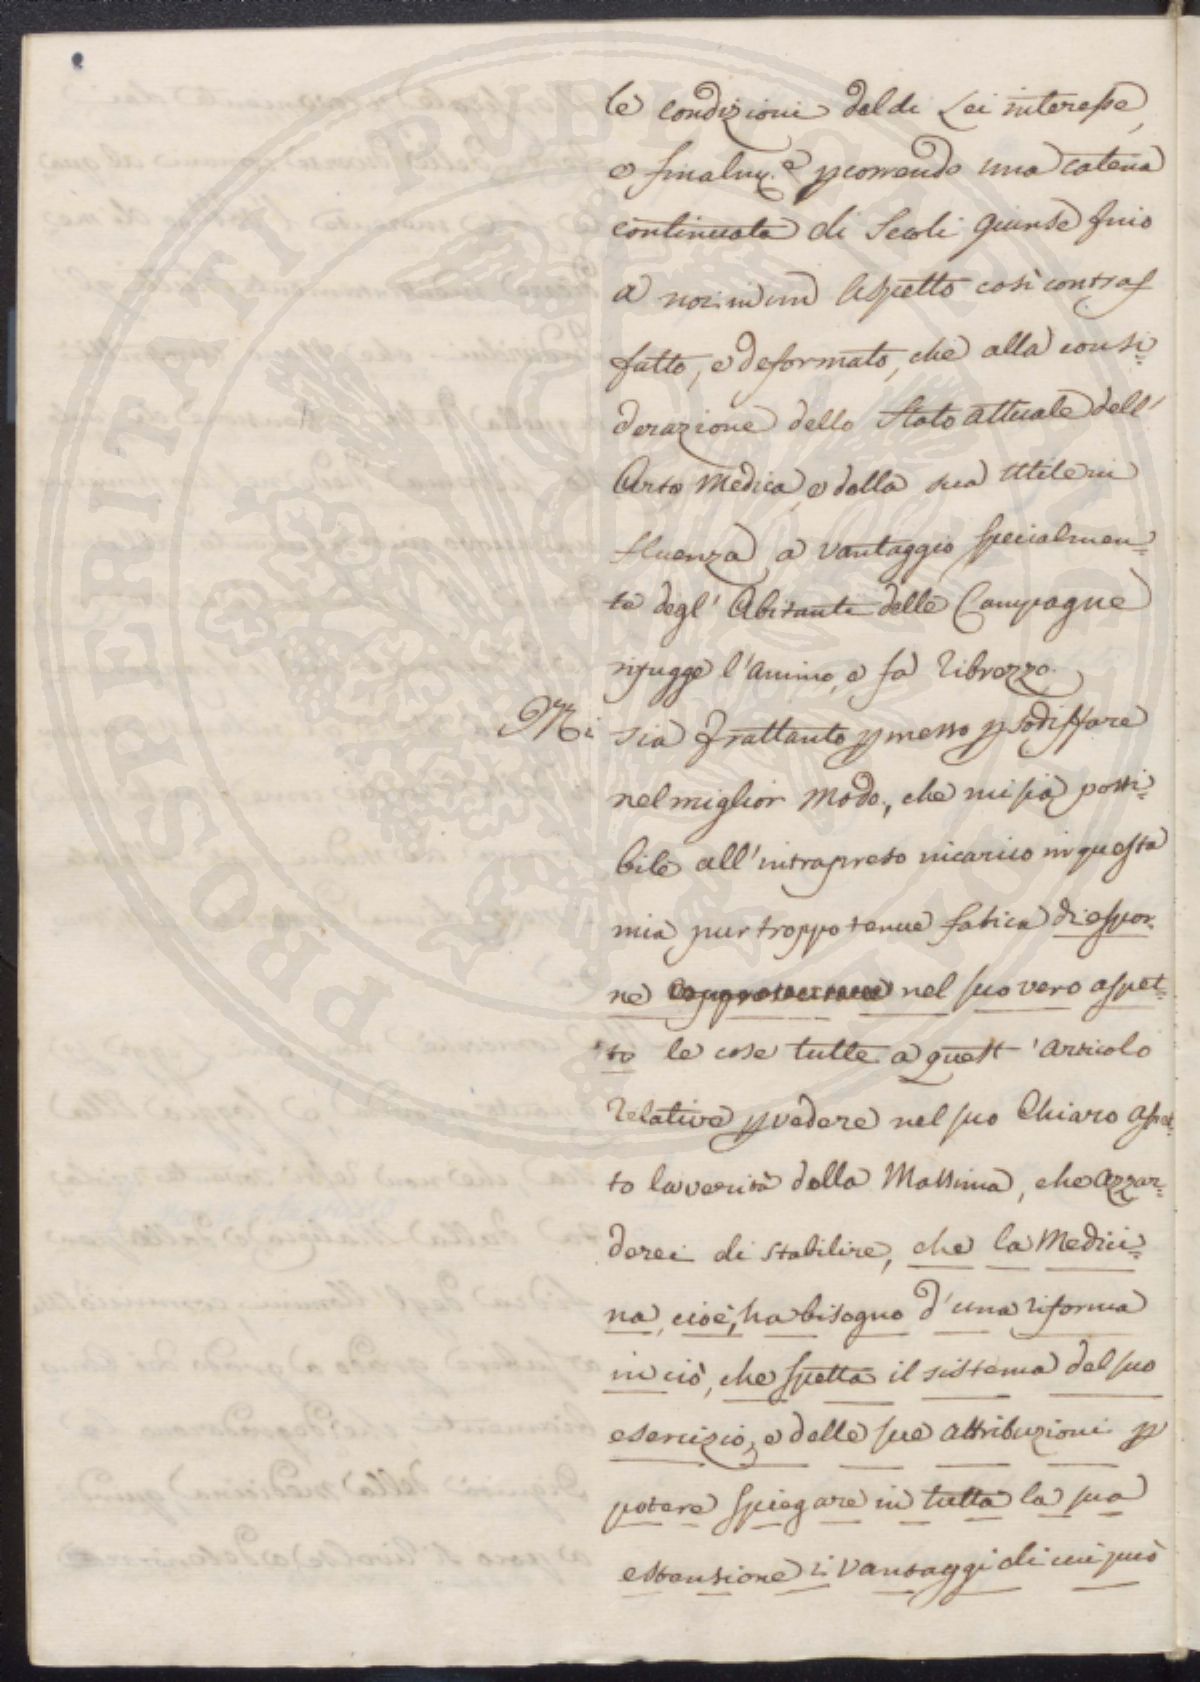 le condizioni del di Lei interesse,
e finalm.e pcorrendo una catena
continuata di Secoli giunse fino
a noi in un Aspetto così contraf
fatto, e deformato, che alla consi=
derazione dello Stato attuale dell'
Arte Medica, e della sua Utile in
fluenza a vantaggio specialmen=
te degl' Abitanti delle Campagne
rifugge l'animo, e fà ribrezzo.
Mi sia frattanto pmesso p sodisffare
nel miglior modo, che mi sia possi=
bile all'intrapreso incarico in questa
mia pur troppo tenue fatica di espor=
re nel suo vero aspet=
to le cose tutte a quest' articolo
relative p vedere nel suo Chiaro aspet=
to la verità della Massima, che azzar=
derei di stabilire, che la Medici=
na, cioè, ha bisogno d'una riforma
in ciò, che spetta il sistema del suo
esercizio, e delle sue attribuzioni p
potere spiegare in tutta la sua
estensione i vantaggi di cui può
PROSPERITATI PUBLICAE